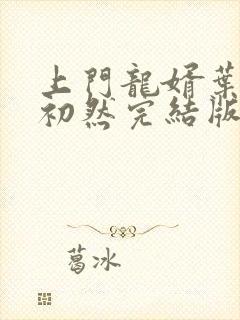 上門龍婿葉
初然完結版
葛冰